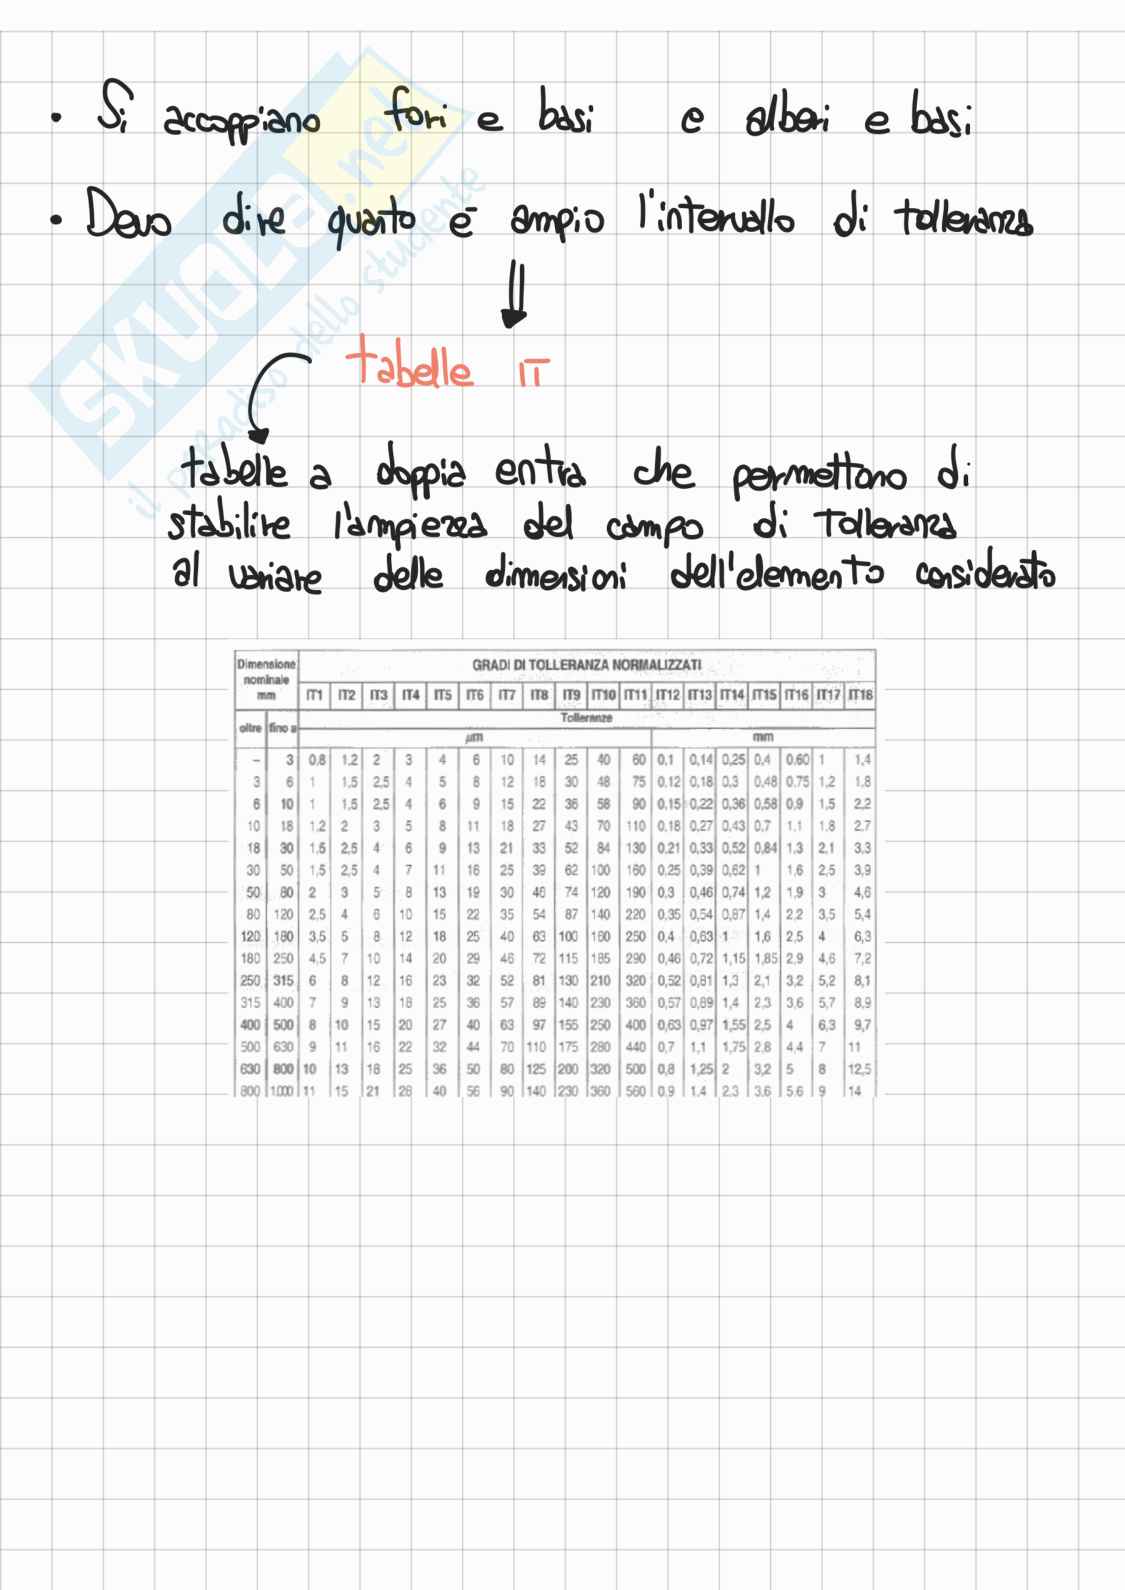 • Si accoppiano fori e basi e alberi e basi
• Devo dire quanto è ampio l'intervallo di tolleranza
tabelle IT
tabelle a doppia entra che permettono di
stabilire l'ampiezza del campo di tolleranza
al variare delle dimensioni dell'elemento considerato
SKUOLA.net
il paradiso dello studente
Dimensione nominale mm GRADI DI TOLLERANZA NORMALIZZATI
IT1 IT2 IT3 IT4 IT5 IT6 IT7 IT8 IT9 IT10 IT11 IT12 IT13 IT14 IT15 IT16 IT17 IT18
oltre fino a Tolleranze
µm mm
– 3 0,8 1,2 2 3 4 6 10 14 25 40 60 0,1 0,14 0,25 0,4 0.60 1 1,4
3 6 1 1,5 2,5 4 5 8 12 18 30 48 75 0.12 0,18 0,3 0,48 0.75 1,2 1,8
6 10 1 1,5 2,5 4 6 9 15 22 36 58 90 0,15 0,22 0,36 0,58 0,9 1,5 2,2
10 18 1,2 2 3 5 8 11 18 27 43 70 110 0,18 0,27 0,43 0,7 1,1 1,8 2,7
18 30 1,5 2,5 4 6 9 13 21 33 52 84 130 0,21 0,33 0,52 0,84 1,3 2,1 3,3
30 50 1,5 2,5 4 7 11 16 25 39 62 100 160 0,25 0,39 0,62 1 1,6 2,5 3,9
50 80 2 3 5 8 13 19 30 46 74 120 190 0,3 0,46 0,74 1,2 1,9 3 4,6
80 120 2,5 4 6 10 15 22 35 54 87 140 220 0,35 0,54 0,87 1,4 2,2 3,5 5,4
120 180 3,5 5 8 12 18 25 40 63 100 160 250 0,4 0,63 1 1,6 2,5 4 6,3
180 250 4,5 7 10 14 20 29 46 72 115 185 290 0,46 0,72 1,15 1,85 2,9 4,6 7,2
250 315 6 8 12 16 23 32 52 81 130 210 320 0,52 0,81 1,3 2,1 3,2 5,2 8,1
315 400 7 9 13 18 25 36 57 89 140 230 360 0,57 0,89 1,4 2,3 3,6 5,7 8,9
400 500 8 10 15 20 27 40 63 97 155 250 400 0,63 0,97 1,55 2,5 4 6,3 9,7
500 630 9 11 16 22 32 44 70 110 175 280 440 0,7 1,1 1,75 2,8 4,4 7 11
630 800 10 13 18 25 36 50 80 125 200 320 500 0,8 1,25 2 3,2 5 8 12,5
800 1000 11 15 21 28 40 56 90 140 230 360 560 0.9 1.4 2.3 3.6 5.6 9 14